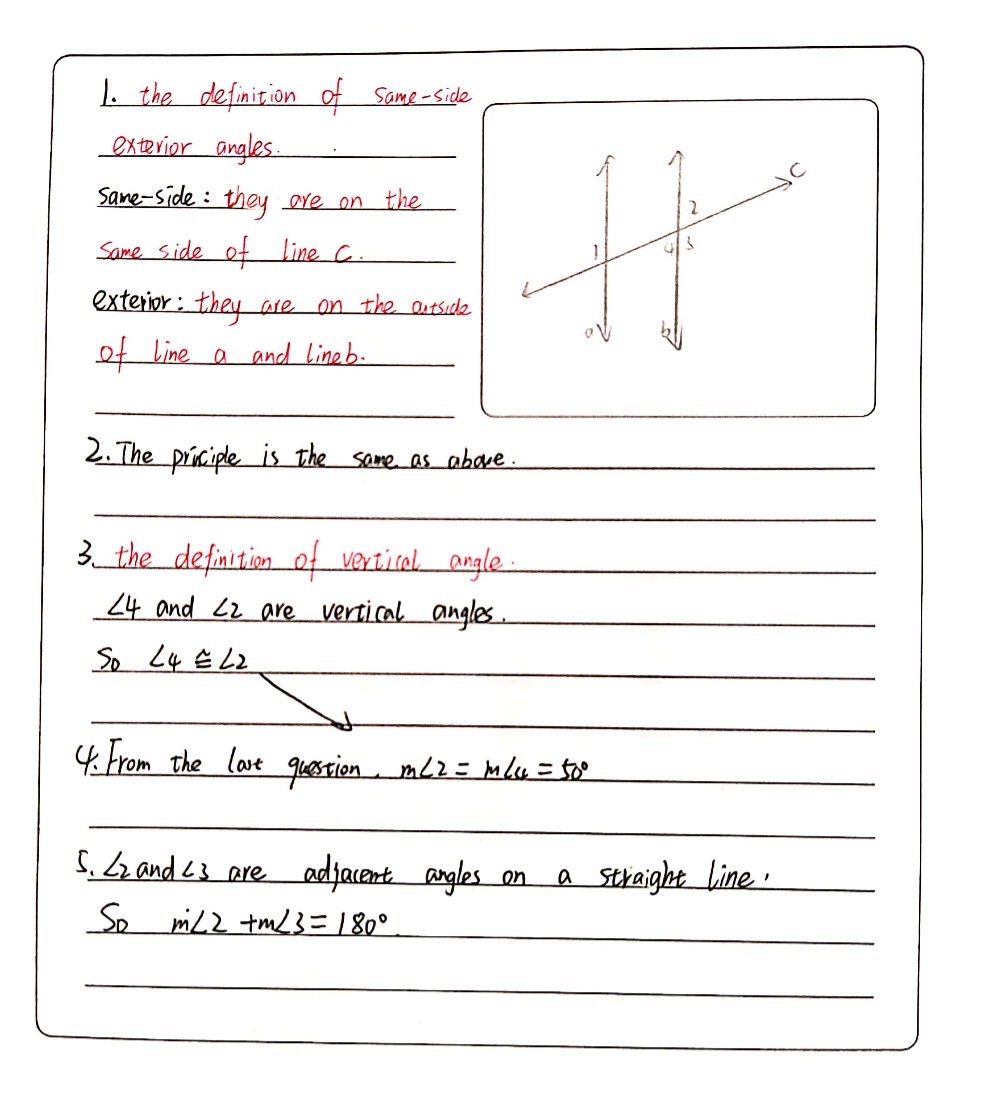 1. the definition of same-side
exterior angles.
same-side: they are on the
same side of line C.
exterior: they are on the outside
of line a and line b.
C
2
1
4 3
a
b
2. The priciple is the same as above.
3. the definition of vertical angle.
∠4 and ∠2 are vertical angles.
So ∠4 ≅ ∠2
4. From the last question, m∠2 = m∠4 = 50°
5. ∠2 and ∠3 are adjacent angles on a straight line.
So m∠2 + m∠3 = 180°.